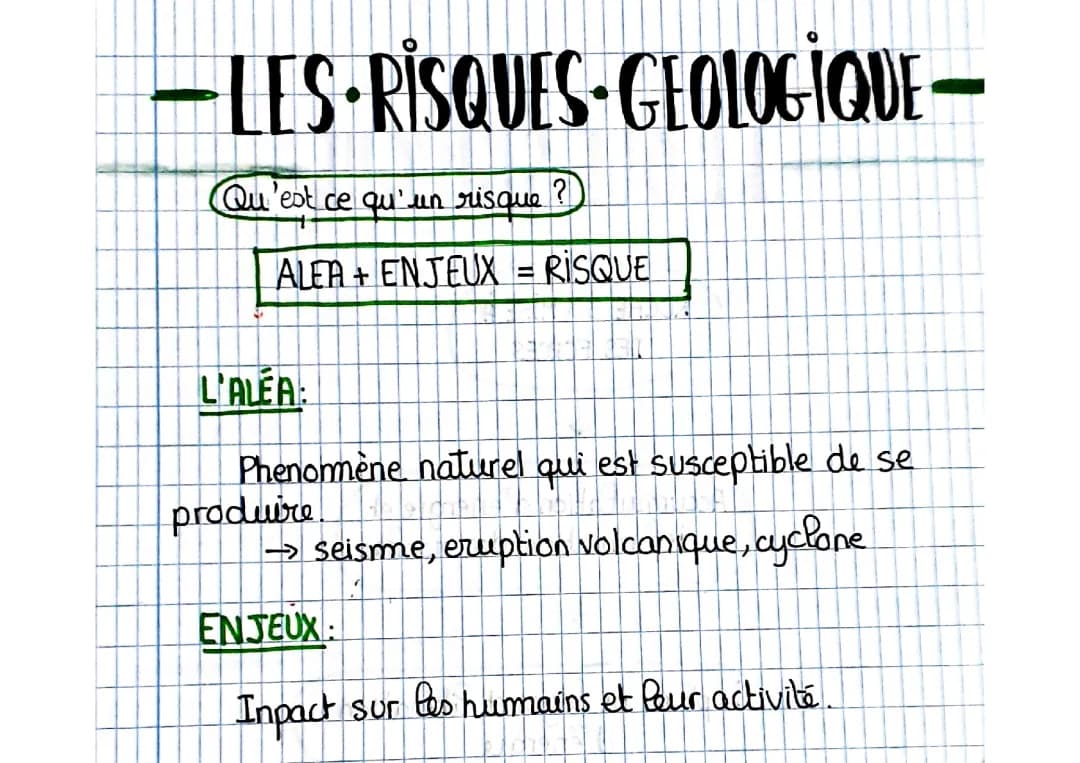 -LES·RISQUES·GEOLOGIQUE-
Qu'est ce qu'un risque ?
ALEA + ENJEUX = RISQUE
L'ALÉA:
Phenomène naturel qui est susceptible de se
produire.
→ seisme, eruption volcanique, cyclone
ENJEUX:
Inpact sur les humains et leur activité.